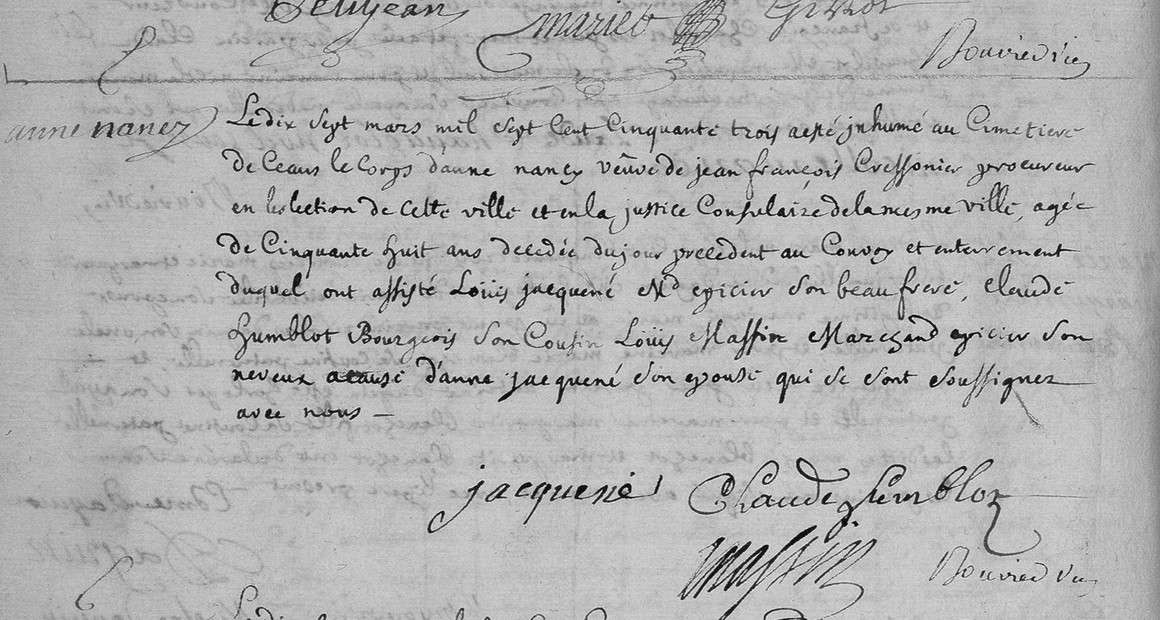 Petitjean mariet Girrot
Bouvier vic
anne nancy
Le dix sept mars mil sept Cent Cinquante trois a esté jnhumé au Cimetiere
de Ceans le Corps d'anne nancy veûve de jean françois Cressonier procureur
en leslection de Cette ville et en la justice Consulaire de la mesme ville, agée
de Cinquante huit ans decedée du jour precedent au Convoy et enterrement
duquel ont assisté Loüis jacquené Md epicier Son beaufrere, Claude
humblot Bourgeois Son Cousin Loüis Massin Marchand epicier Son
neveux acause d'anne jacquené Son epouse qui se sont Soussignez
avec nous —
jacquené Claude humblot
massin Bouvier vic
Le dix